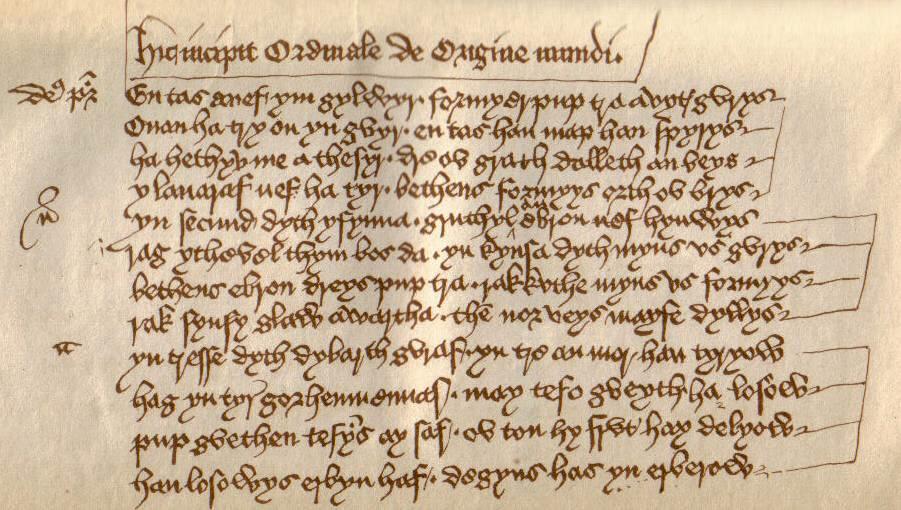 hic incipit Ordinale de Origine mundi.
de9 pr̄
En tas a nef ym gylwyr · formyer pup tra a vyt gvrys
Onan ha try on yn gvyr · en tas han map han spyrys
ha hethyv me a thesyr · dre ov grath dalleth an beys
y lavaraf nef ha tyr · bethens formyys orth ov brys
yn secund dyth y fynna · gruthyl ebron nef hynwys
rag ythevel thym bos da · yn kynsa dyth myns vs gvrys
bethens ebron dreys pup tra · rak kvthe myns vs formyys
rak synsy glaw awartha · the nor veys may fe dyllys
yn tresse dyth dybarth gvraf · yn tre an mor han tyryow
hag yn tyr gorhemmennaf · may tefo gveyth ha losow
pup gvethen tefyns ay saf · ov ton hy frvt hay delyow
han losowys erbyn haf · degyns has yn erberow